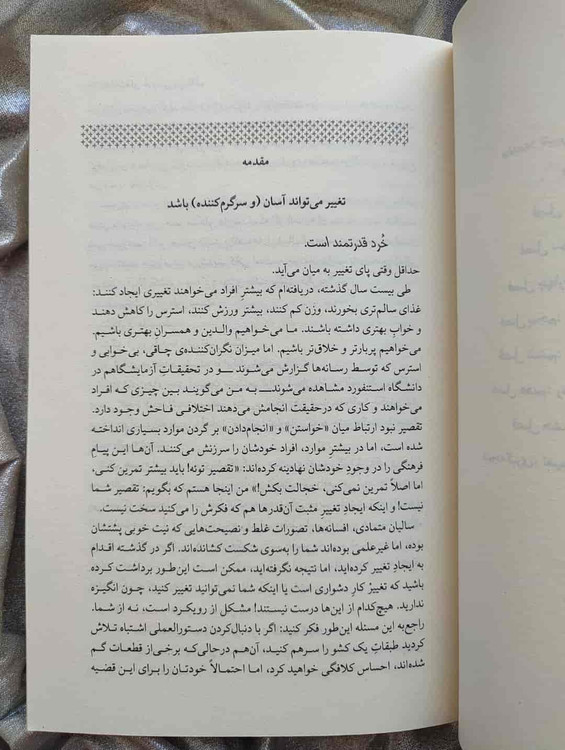 مقدمه
تغییر می‌تواند آسان (و سرگرم‌کننده) باشد
خُرد قدرتمند است.
حداقل وقتی پای تغییر به میان می‌آید.
طی بیست سال گذشته، دریافته‌ام که بیشترِ افراد می‌خواهند تغییری ایجاد کنند:
غذای سالم‌تری بخورند، وزن کم کنند، بیشتر ورزش کنند، استرس را کاهش دهند
و خوابِ بهتری داشته باشند. ما می‌خواهیم والدین و همسرانِ بهتری باشیم.
می‌خواهیم پربارتر و خلاق‌تر باشیم. اما میزان نگران‌کننده‌یِ چاقی، بی‌خوابی و
استرس که توسط رسانه‌ها گزارش می‌شوند ــ و در تحقیقاتِ آزمایشگاهم در
دانشگاه استنفورد مشاهده می‌شوندــ به من می‌گویند بین چیزی که افراد
می‌خواهند و کاری که درحقیقت انجامش می‌دهند اختلافی فاحش وجود دارد.
تقصیر نبود ارتباط میان «خواستن» و «انجام‌دادن» بر گردن موارد بسیاری انداخته
شده است، اما در بیشترِ موارد، افراد خودشان را سرزنش می‌کنند. آن‌ها این پیام
فرهنگی را در وجودِ خودشان نهادینه کرده‌اند: «تقصیر توئه! باید بیشتر تمرین کنی،
اما اصلاً تمرین نمی‌کنی، خجالت بکش!» من اینجا هستم که بگویم: تقصیر شما
نیست! و اینکه ایجادِ تغییرِ مثبت آن‌قدرها هم که فکرش را می‌کنید سخت نیست.
سالیان متمادی، افسانه‌ها، تصورات غلط و نصیحت‌هایی که نیت خوبی پشتشان
بوده، اما غیرعلمی بوده‌اند شما را به‌سوی شکست کشانده‌اند. اگر در گذشته اقدام
به ایجادِ تغییر کرده‌اید، اما نتیجه نگرفته‌اید، ممکن است این‌طور برداشت کرده
باشید که تغییرْ کار دشواری است یا اینکه شما نمی‌توانید تغییر کنید، چون انگیزه
ندارید. هیچ‌کدام از این‌ها درست نیستند! مشکل از رویکرد است، نه از شما.
راجع‌به این مسئله این‌طور فکر کنید: اگر با دنبال‌کردن دستورالعملی اشتباه تلاش
کردید طبقاتِ یک کشو را سرهم کنید، آن‌هم درحالی‌که برخی‌از قطعات گم
شده‌اند، احساس کلافگی خواهید کرد، اما احتمالاً خودتان را برای این قضیه